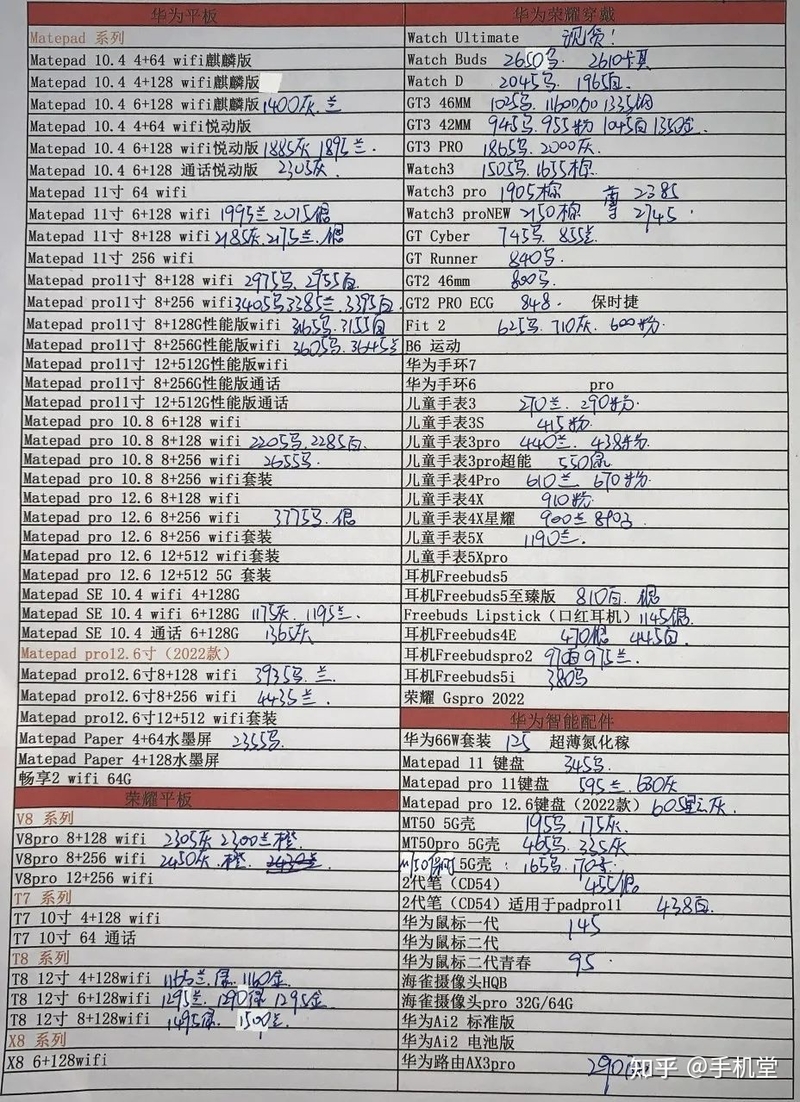 华为平板
Matepad 系列
Matepad 10.4 4+64 wifi麒麟版
Matepad 10.4 4+128 wifi麒麟版
Matepad 10.4 6+128 wifi麒麟版 1400灰.兰
Matepad 10.4 4+64 wifi悦动版
Matepad 10.4 6+128 wifi悦动版 1885灰 1895兰.
Matepad 10.4 6+128 通话悦动版 2305灰.
Matepad 11寸 64 wifi
Matepad 11寸 6+128 wifi 1995兰 2015
Matepad 11寸 8+128 wifi 2185灰.2175兰.
Matepad 11寸 256 wifi
Matepad pro11寸 8+128 wifi 2975马.2955白
Matepad pro11寸 8+256 wifi 3405马3385兰.3395白
Matepad pro11寸 8+128G性能版wifi 3165马.3155白
Matepad pro11寸 8+256G性能版wifi 3605马.3645兰
Matepad pro11寸 12+512G性能版wifi
Matepad pro11寸 8+256G性能版通话
Matepad pro11寸 12+512G性能版通话
Matepad pro 10.8 6+128 wifi
Matepad pro 10.8 8+128 wifi 2205马.2285白.
Matepad pro 10.8 8+256 wifi 2655马.
Matepad pro 10.8 8+256 wifi套装
Matepad pro 12.6 8+128 wifi
Matepad pro 12.6 8+256 wifi 3775马.
Matepad pro 12.6 8+256 wifi套装
Matepad pro 12.6 12+512 wifi套装
Matepad pro 12.6 12+512 5G 套装
Matepad SE 10.4 wifi 4+128G
Matepad SE 10.4 wifi 6+128G 1175灰.1195兰.
Matepad SE 10.4 通话 6+128G 1365灰
Matepad pro12.6寸（2022款）
Matepad pro12.6寸8+128 wifi 3935马.兰.
Matepad pro12.6寸8+256 wifi 4435兰.
Matepad pro12.6寸12+512 wifi套装
Matepad Paper 4+64水墨屏 2355马.
Matepad Paper 4+128水墨屏
畅享2 wifi 64G
荣耀平板
V8 系列
V8pro 8+128 wifi 2305灰 2300兰橙
V8pro 8+256 wifi 2450灰.橙.
V8pro 12+256 wifi
T7 系列
T7 10寸 4+128 wifi
T7 10寸 64 通话
T8 系列
T8 12寸 4+128wifi 1165兰.绿.1160金.
T8 12寸 6+128wifi 1295兰.1290绿.1295金.
T8 12寸 8+128wifi 1495绿. 1500兰.
X8 系列
X8 6+128wifi
华为荣耀穿戴
Watch Ultimate 现货!
Watch Buds 2650马. 2610卡其
Watch D 2045马. 1965白.
GT3 46MM 1025马. 1335钢
GT3 42MM 945马.955粉 1045白 1350金.
GT3 PRO 1865马.2000灰.
Watch3 1505马.1655棕.
Watch3 pro 1905棕 尊 2385
Watch3 proNEW 2150棕 尊 2745.
GT Cyber 745马. 855兰.
GT Runner 840马.
GT2 46mm 800马.
GT2 PRO ECG 848. 保时捷
Fit 2 625马.710灰.600粉.
B6 运动
华为手环7
华为手环6 pro
儿童手表3 270兰.290粉.
儿童手表3S 415粉
儿童手表3pro 440兰. 438粉.
儿童手表3pro超能 550绿.
儿童手表4Pro 610兰. 670粉.
儿童手表4X 910粉.
儿童手表4X星耀 900兰 890马.
儿童手表5X 1190兰.
儿童手表5Xpro
耳机Freebuds5
耳机Freebuds5至臻版 810白.
Freebuds Lipstick（口红耳机）1145
耳机Freebuds4E 470 445白.
耳机Freebudspro2 970白 975兰.
耳机Freebuds5i 380马
荣耀 Gspro 2022
华为智能配件
华为66W套装 125 超薄氮化稼
Matepad 11 键盘 345马.
Matepad pro 11键盘 595兰.630灰
Matepad pro 12.6键盘（2022款）605 灰.
MT50 5G壳 195马.175灰.
MT50pro 5G壳 465马. 335灰
5G壳 : 165马.170
2代笔（CD54） 455
2代笔（CD54）适用于padpro11 438白.
华为鼠标一代 145
华为鼠标二代
华为鼠标二代青春 95.
海雀摄像头HQB
海雀摄像头pro 32G/64G
华为Ai2 标准版
华为Ai2 电池版
华为路由AX3pro 290
知乎 @手机堂